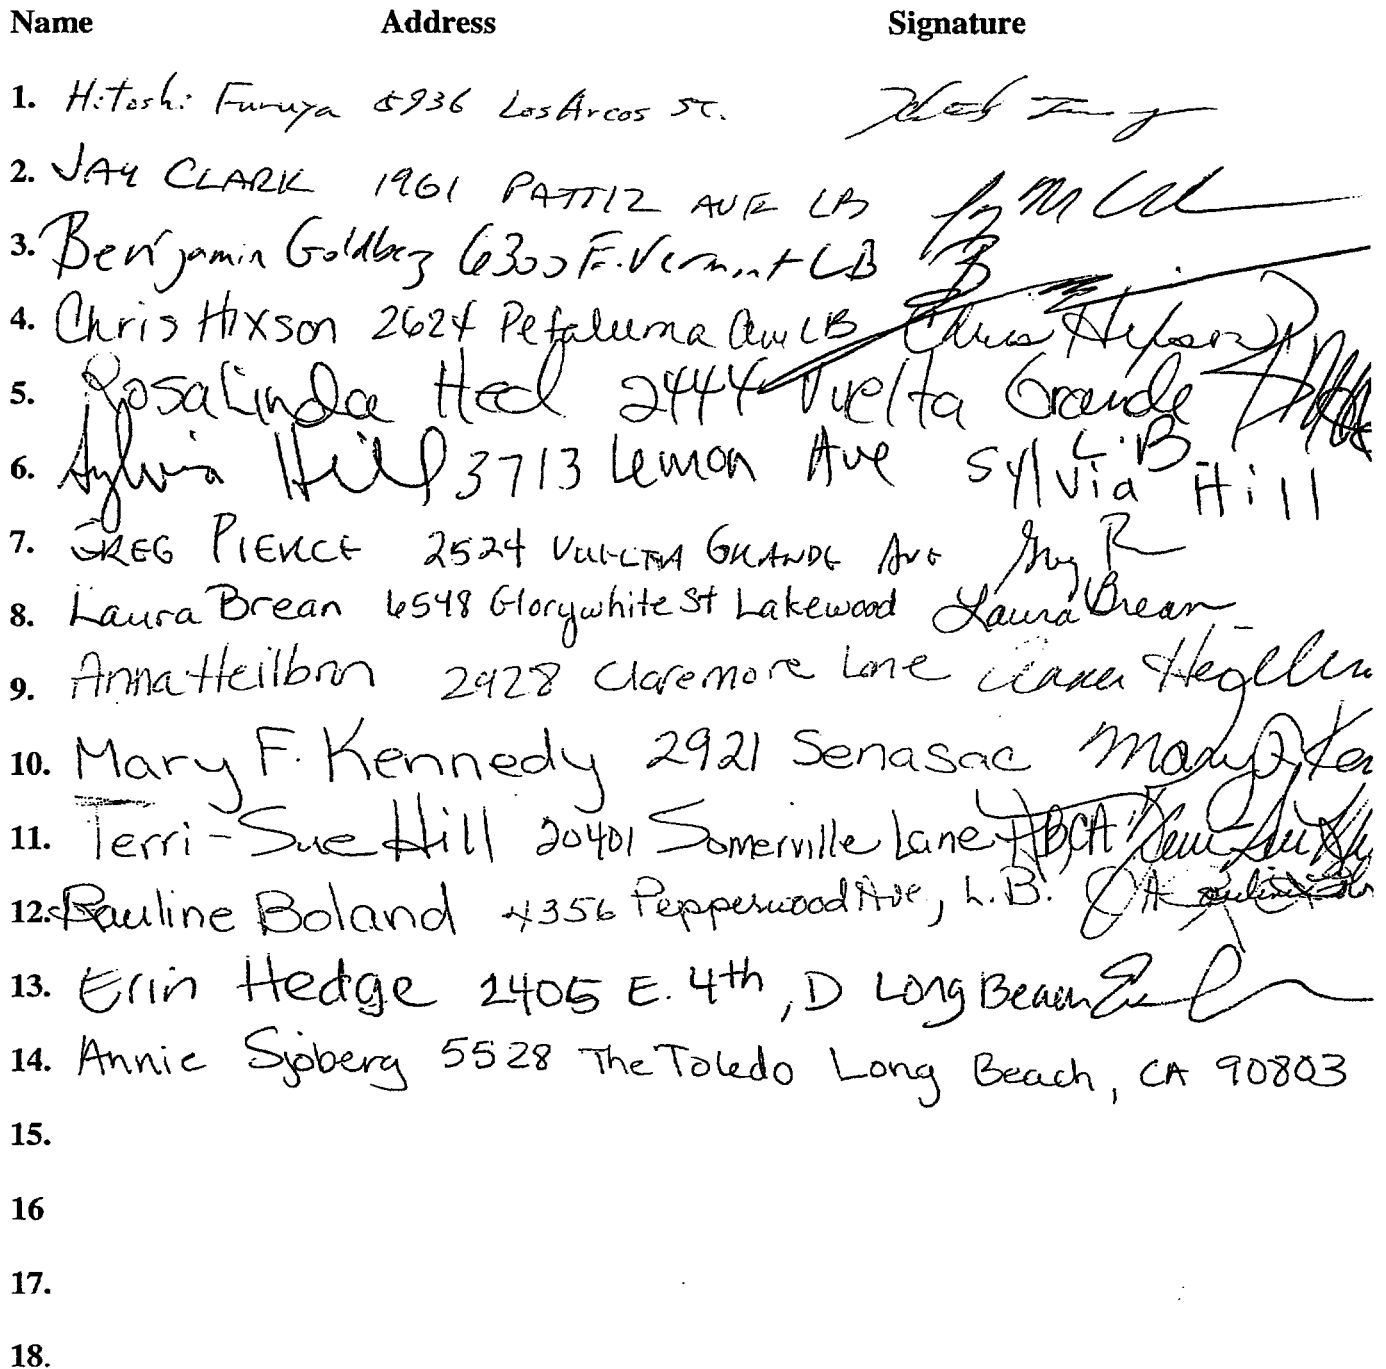 Name Address Signature
1. Hitoshi Furuya 5936 Los Arcos St.
2. JAY CLARK 1961 PATTIZ AVE LB
3. Benjamin Goldberg 6300 E. Vermont LB
4. Chris Hixson 2624 Petaluma Ave LB Chris Hixson
5. Rosalinda Heel 2444 Vuelta Grande L.B.
6. Sylvia Hill 3713 Lemon Ave Sylvia Hill
7. GREG PIERCE 2524 VUELTA GRANDE AVE
8. Laura Brean 6548 Glorywhite St Lakewood Laura Brean
9. Anna Heilbron 2928 Claremore Lane
10. Mary F. Kennedy 2921 Senasac Mary
11. Terri-Sue Hill 20401 Somerville Lane HB, CA
12. Pauline Boland 4356 Pepperwood Ave, L.B. CA
13. Erin Hedge 2405 E. 4th, D Long Beach
14. Annie Sjoberg 5528 The Toledo Long Beach, CA 90803
15.
16
17.
18.